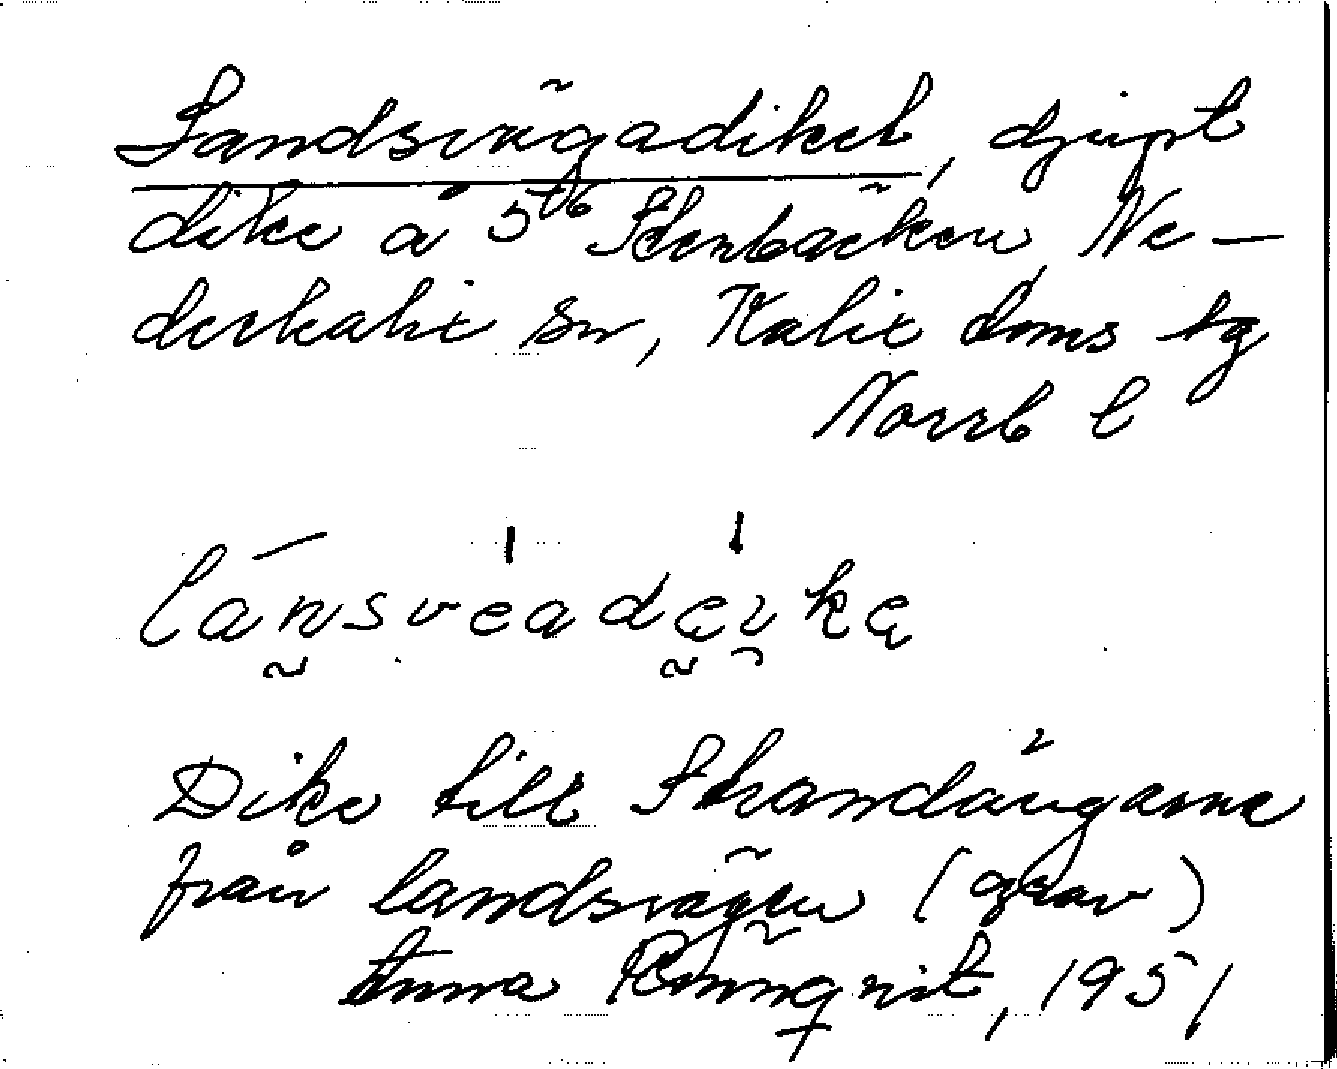 Landsvägadiket, djupt
dike å 5/6 Stenbäcken, Ne-
derkalix sn, Kalix doms tg
Norrb l
Dike till Strandängarna
från landsvägen (grav)
Anna Rönnqvist, 1951